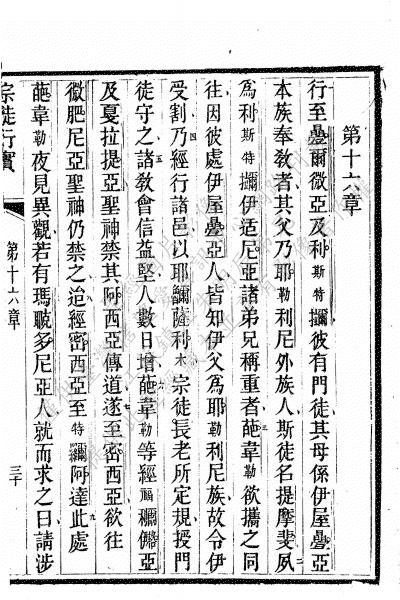 第十六章
行至疊爾微亞及利斯特攡彼有門徒其母係伊屋疊亞
本族奉教者其父乃耶勒利尼外族人斯徒名提摩斐夙
為利斯特攡伊适尼亞諸弟兄稱重者葩韋勒欲攜之同
往因彼處伊屋疊亞人皆知伊父為耶勒利尼族故令伊
受割乃經行諸邑以耶薩利木宗徒長老所定規授門
徒守之諸教會信益堅人數日增葩韋勒等經福亞
及戛拉提亞聖神禁其阿西亞傳道遂至密西亞欲往
微肥尼亞聖神仍禁之迨經密西亞至特阿達此處
葩韋勒夜見異觀若有瑪多尼亞人就而求之曰請涉
宗徒行實 第十六章 三十